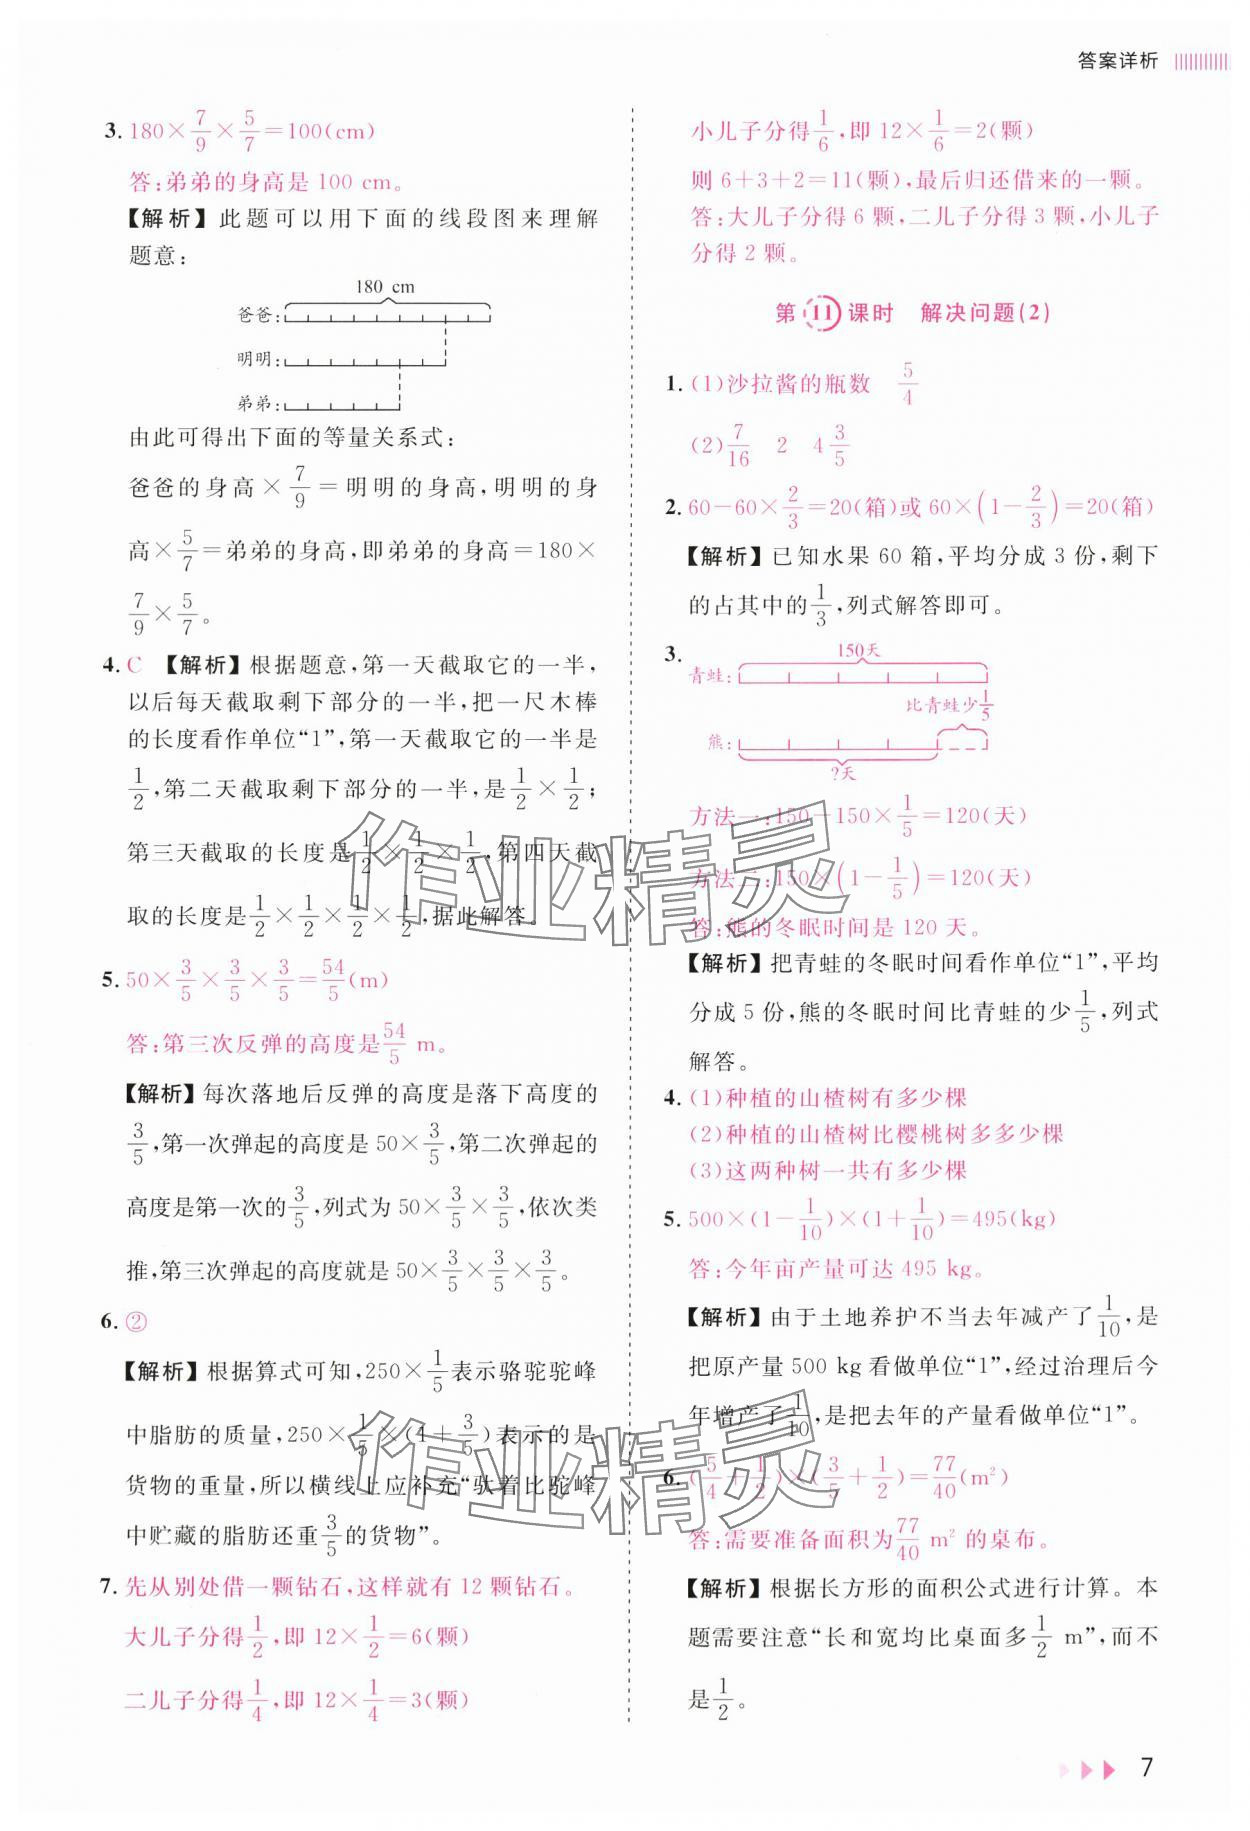 答案详析
3. 180×7/9×5/7=100(cm)
答:弟弟的身高是 100 cm。
【解析】此题可以用下面的线段图来理解
题意:
180 cm
爸爸:
明明:
弟弟:
由此可得出下面的等量关系式:
爸爸的身高×7/9=明明的身高,明明的身
高×5/7=弟弟的身高,即弟弟的身高=180×
7/9×5/7。
4. C 【解析】根据题意,第一天截取它的一半,
以后每天截取剩下部分的一半,把一尺木棒
的长度看作单位“1”,第一天截取它的一半是
1/2,第二天截取剩下部分的一半,是1/2×1/2;
第三天截取的长度是1/2×1/2×1/2,第四天截
取的长度是1/2×1/2×1/2×1/2,据此解答。
5. 50×3/5×3/5×3/5=54/5(m)
答:第三次反弹的高度是54/5 m。
【解析】每次落地后反弹的高度是落下高度的
3/5,第一次弹起的高度是 50×3/5,第二次弹起的
高度是第一次的3/5,列式为 50×3/5×3/5,依次类
推,第三次弹起的高度就是 50×3/5×3/5×3/5。
6. ②
【解析】根据算式可知,250×1/5表示骆驼驼峰
中脂肪的质量,250×1/5×(1+3/5)表示的是
货物的重量,所以横线上应补充“驮着比驼峰
中贮藏的脂肪还重3/5的货物”。
7. 先从别处借一颗钻石,这样就有 12 颗钻石。
大儿子分得1/2,即 12×1/2=6(颗)
二儿子分得1/4,即 12×1/4=3(颗)
小儿子分得1/6,即 12×1/6=2(颗)
则 6+3+2=11(颗),最后归还借来的一颗。
答:大儿子分得 6 颗,二儿子分得 3 颗,小儿子
分得 2 颗。
第 11 课时 解决问题(2)
1. (1)沙拉酱的瓶数 5/4
(2)7/16 2 4 3/5
2. 60-60×2/3=20(箱)或 60×(1-2/3)=20(箱)
【解析】已知水果 60 箱,平均分成 3 份,剩下
的占其中的1/3,列式解答即可。
3.
150天
青蛙:
比青蛙少1/5
熊:
?天
方法一:150-150×1/5=120(天)
方法二:150×(1-1/5)=120(天)
答:熊的冬眠时间是 120 天。
【解析】把青蛙的冬眠时间看作单位“1”,平均
分成 5 份,熊的冬眠时间比青蛙的少1/5,列式
解答。
4. (1)种植的山楂树有多少棵
(2)种植的山楂树比樱桃树多多少棵
(3)这两种树一共有多少棵
5. 500×(1-1/10)×(1+1/10)=495(kg)
答:今年亩产量可达 495 kg。
【解析】由于土地养护不当去年减产了1/10,是
把原产量 500 kg 看做单位“1”,经过治理后今
年增产了1/10,是把去年的产量看做单位“1”。
6. (5/4+1/2)×(3/5+1/2)=77/40(m²)
答:需要准备面积为77/40 m² 的桌布。
【解析】根据长方形的面积公式进行计算。本
题需要注意“长和宽均比桌面多1/2 m”,而不
是1/2。
作业精灵
作业精灵
7